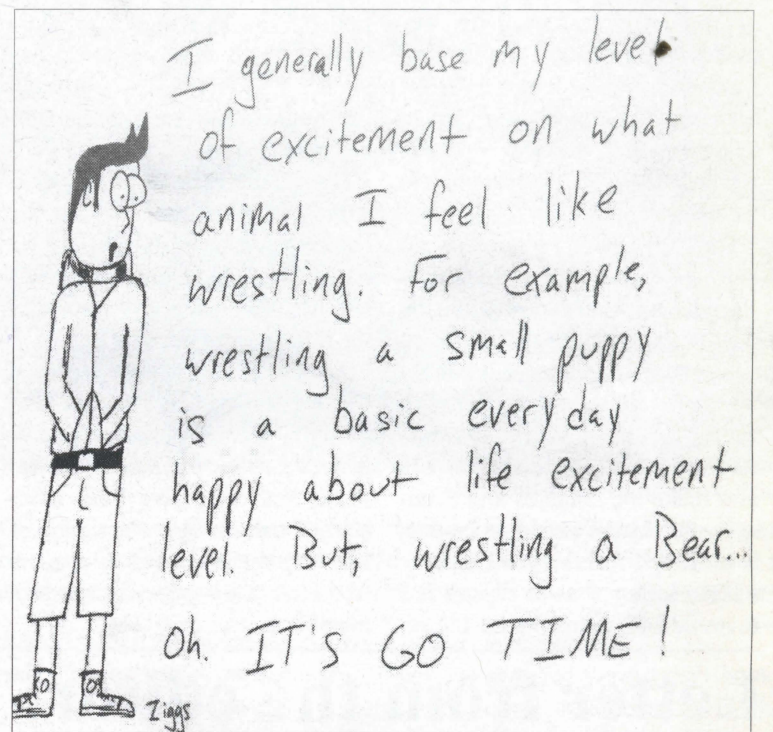 I generally base my level
of excitement on what
animal I feel like
wrestling. For example,
wrestling a small puppy
is a basic everyday
happy about life excitement
evel. But, wrestling a Bear...
Oh. IT'S GO TIME!
Ziggs